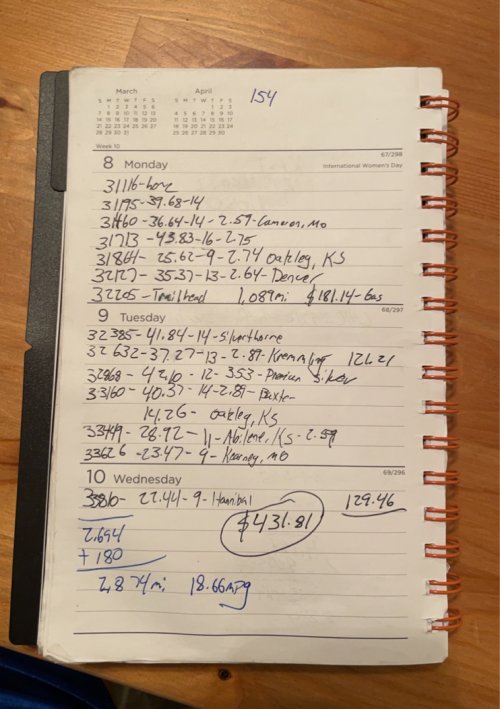 March April 154
S M T W T F S S M T W T F S
1 2 3 4 5 6 1 2 3
7 8 9 10 11 12 13 4 5 6 7 8 9 10
14 15 16 17 18 19 20 11 12 13 14 15 16 17
21 22 23 24 25 26 27 18 19 20 21 22 23 24
28 29 30 31 25 26 27 28 29 30
Week 10 67/298
8 Monday International Women's Day
31116-home
31195-39.68-14
31460-36.64-14-2.59-Cameron, Mo
31713-43.83-16-2.75
31864-25.62-9-2.74 Oakley, KS
32127-35.37-13-2.64-Denver
32205-Trailhead 1,089mi $181.14-Gas
68/297
9 Tuesday
32385-41.84-14-Silverthorne
32632-37.27-13-2.89-Kremmling 121.21
32868-42.10-12-3.53-Premium Silver
33160-40.37-14-2.89-Baxter
14.26- Oakley, KS
33449-28.92-11-Abilene, KS-2.59
33626-23.47-9-Kearney, MO
69/296
10 Wednesday
33810-22.44-9-Hannibal 129.46
$431.81
2,694
+ 180
2,874mi 18.66mpg